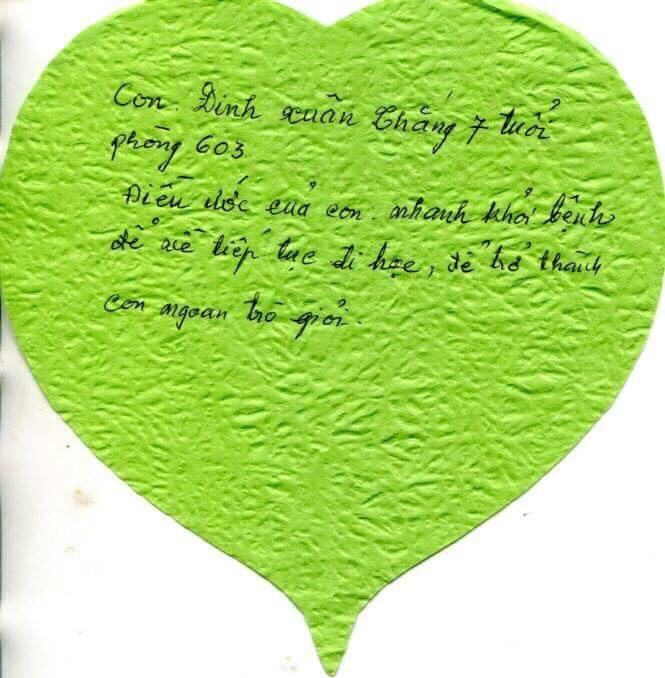 Con. Đinh xuân Thắng 7 tuổi
phòng 603.
Điều ước của con: nhanh khỏi bệnh
để về tiếp tục đi học, để trở thành
con ngoan trò giỏi.